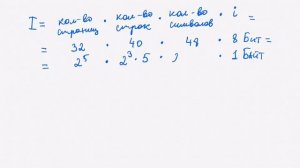 I = кол-во страниц · кол-во строк · кол-во символов · i =
= 32 · 40 · 48 · 8 Бит =
= 2⁵ · 2³ · 5 · · 1 Байт